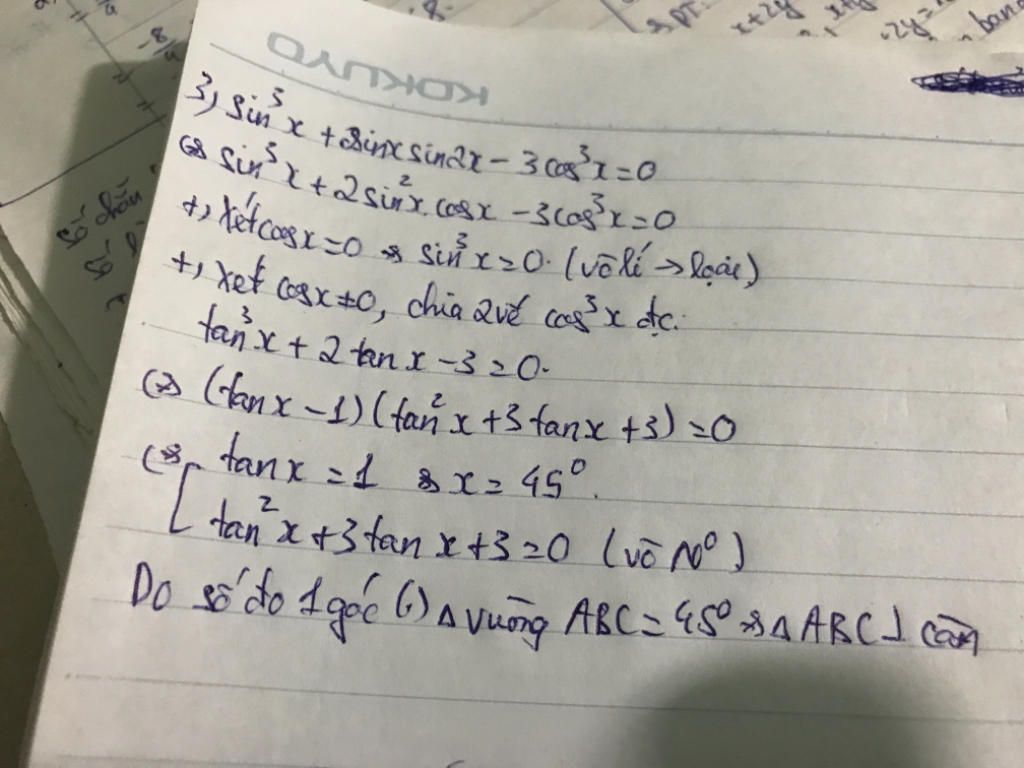 x+2y
KOKUYO
3, sin³x + sinxsin2x - 3cos³x = 0
⇔ sin³x + 2sin²x.cosx - 3cos³x = 0
+, Xét cosx=0 ⇒ sin³x = 0. (vô lí → loại)
+, Xét cosx≠0, chia 2 vế cos³x đc:
tan³x + 2tanx - 3 = 0.
⇔ (tanx - 1)(tan²x + 3tanx + 3) = 0
⇔ [ tanx = 1 ⇒ x = 45°.
tan²x + 3tanx + 3 = 0 (vô N°)
Do số đo 1 góc (,) Δ vuông ABC = 45° ⇒ Δ ABC ⊥ cân